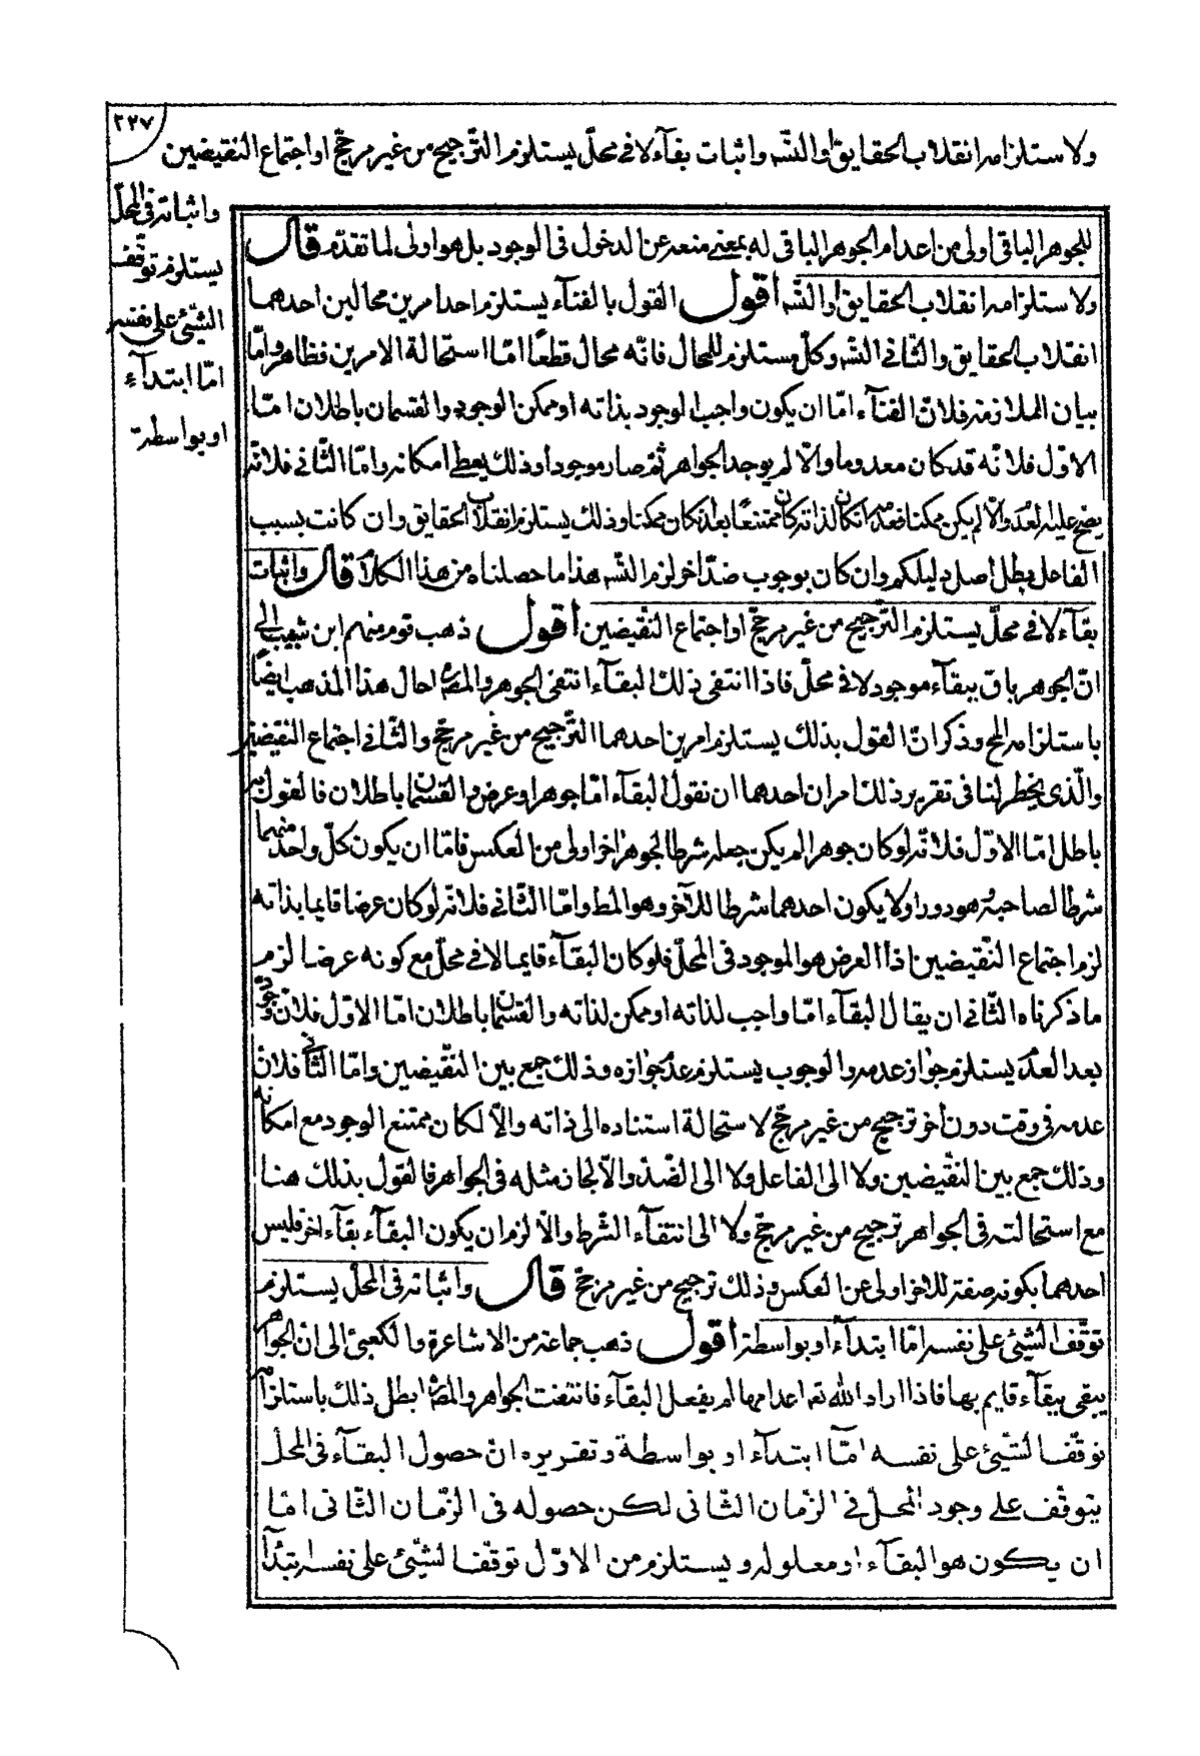 ٢٢٧
ولاستلزامه انقلاب الحقايق او التسّه واثبات بقآء لا فى محلّ يستلزم التّرجيح من غير مرجّح او اجتماع النقيضين
واثباته فى المحلّ
يستلزم توقّف
الشّيئ على نفسه
امّا ابتدآء
او بواسطة
للجوهر الباقى اولى من اعدام الجوهر الباقى له بمعنى منعه عن الدخول فى الوجود بل هو اولى لما تقدّم قال
ولاستلزامه انقلاب الحقايق او التسّه اقول القول بالفنآء يستلزم احد امرين محالين احدهما
انقلاب الحقايق والثّانى التسّه وكلّ مستلزم للمحال فانّه محال قطعًا امّا استحالة الامرين فظاهر وامّا
بيان الملازمة فلانّ الفنآء امّا ان يكون واجب الوجود بذاته او ممكن الوجود والقسمان باطلان امّا
الاوّل فلانّه قد كان معدوما والّا لم يوجد الجواهر ثمّ صار موجودا وذلك يعطى امكانه وامّا الثّانى فلانّه
يصحّ عليه العدم والّا لم يكن ممكنا فعدمه ان كان لذاته كان ممتنعًا بعد ان كان ممكنا وذلك يستلزم انقلاب الحقايق وان كانت بسبب
الفاعل بطل اصل دليلكم وان كان بوجوب ضدّ اخر لزم التسّه هذا ما حصلناه من هذا الكلام قال واثبات
بقآء لا فى محلّ يستلزم التّرجيح من غير مرجّح او اجتماع النّقيضين اقول ذهب قوم منهم ابن شبيب الى
انّ الجوهر باق ببقآء موجود لا فى محلّ فاذا انتفى ذلك البقآء انتفى الجوهر والمصرء احال هذا المذهب ايضًا
باستلزامه المح وذكر انّ القول بذلك يستلزم امرين احدهما التّرجيح من غير مرجّح والثّانى اجتماع النّقيضين
والّذى يخطر لنا فى تقرير ذلك امران احدهما ان نقول البقآء امّا جوهر او عرض والقسمان باطلان فالقول به
باطل امّا الاوّل فلانّه لو كان جوهرا لم يكن جعله شرطا لجوهر اخر اولى من العكس فامّا ان يكون كلّ واحد منهما
شرطا لصاحبه وهو دور اولا يكون احدهما شرطا للآخر وهو المط وامّا الثّانى فلانّه لو كان عرضا قايما بذاته
لزم اجتماع النّقيضين اذ العرض هو الموجود فى المحلّ فلو كان البقآء قايما لا فى محلّ مع كونه عرضا لزم
ما ذكرناه الثّانى ان يقال البقآء امّا واجب لذاته او ممكن لذاته والقسمان باطلان امّا الاوّل فلانّ وجوده
بعد العدم يستلزم جواز عدمه والوجوب يستلزم عدم جوازه وذلك جمع بين النّقيضين وامّا الثّانى فلانّ
عدمه فى وقت دون اخر ترجيح من غير مرجّح لاستحالة استناده الى ذاته والّا لكان ممتنع الوجود مع امكانه
وذلك جمع بين النّقيضين ولا الى الفاعل ولا الى الضّدّ والّا لجاز مثله فى الجواهر فالقول بذلك هنا
مع استحالته فى الجواهر ترجيح من غير مرجّح ولا الى انتفآء الشّرط والّا لزم ان يكون البقآء بقآء اخر فليس
احدهما بكونه صفة للاخر اولى من العكس وذلك ترجيح من غير مرجّح قال واثباته فى المحلّ يستلزم
توقّف الشّيئ على نفسه امّا ابتدآء او بواسطة اقول ذهب جماعة من الاشاعرة والكعبىّ الى انّ الجواهر
يبقى ببقآء قايم بها فاذا اراد اللّه تعا اعدامها لم يفعل البقآء فانتفت الجواهر والمصرء ابطل ذلك باستلزامه
توقّف الشّيئ على نفسه امّا ابتدآء او بواسطة وتقريره انّ حصول البقآء فى المحلّ
يتوقّف على وجود المحلّ فى الزّمان الثّانى لكن حصوله فى الزّمان الثّانى امّا
ان يكون هو البقآء او معلوله ويستلزم من الاوّل توقّف الشّيئ على نفسه ابتدآء